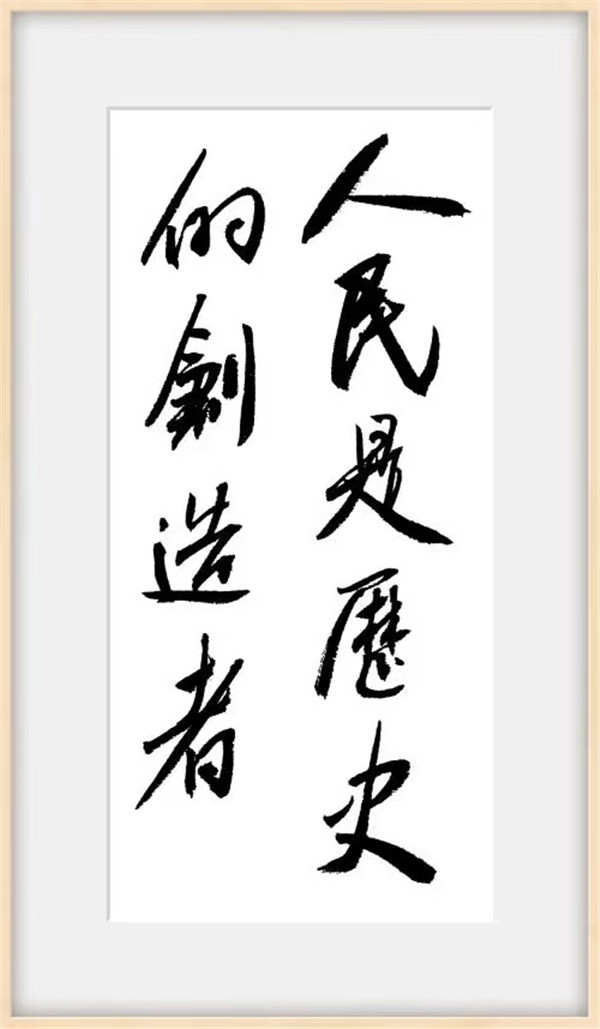 人民是歷史
的創造者